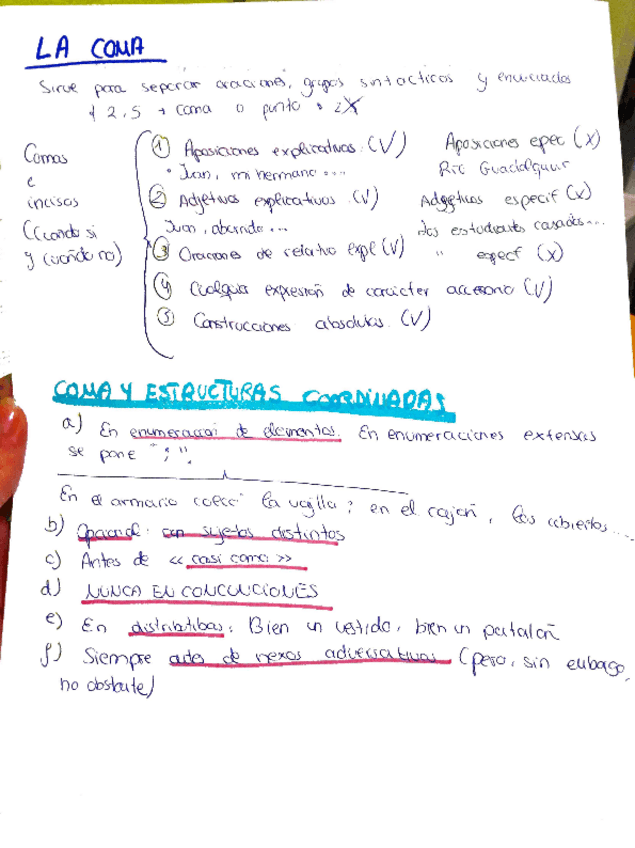 LA COMA
Sirve para separar oraciones, grupos sintácticos y enunciados
2,5 → coma o punto
Comas
e
incisos
(Cuando si
y cuando no)
① Aposiciones explicativas (V) Aposiciones epec (X)
• Juan, mi hermano... Río Guadalquivir
② Adjetivos explicativos (V) Adjetivos especif (X)
Juan, aburrido... los estudiantes cansados...
③ Oraciones de relativo expl (V) " especf (X)
④ Cualquier expresión de carácter accesorio (V)
⑤ Construcciones absolutas (V)
COMA Y ESTRUCTURAS COORDINADAS
a) En enumeración de elementos. En enumeraciones extensas
se pone ";".
En el armario colocó la vajilla; en el cajón, los cubiertos...
b) con sujetos distintos
c) Antes de << así como >>
d) NUNCA EN
e) En distributibas: Bien un vestido, bien un pantalón
f) Siempre antes de nexos adversativos (pero, sin embargo,
no obstante)